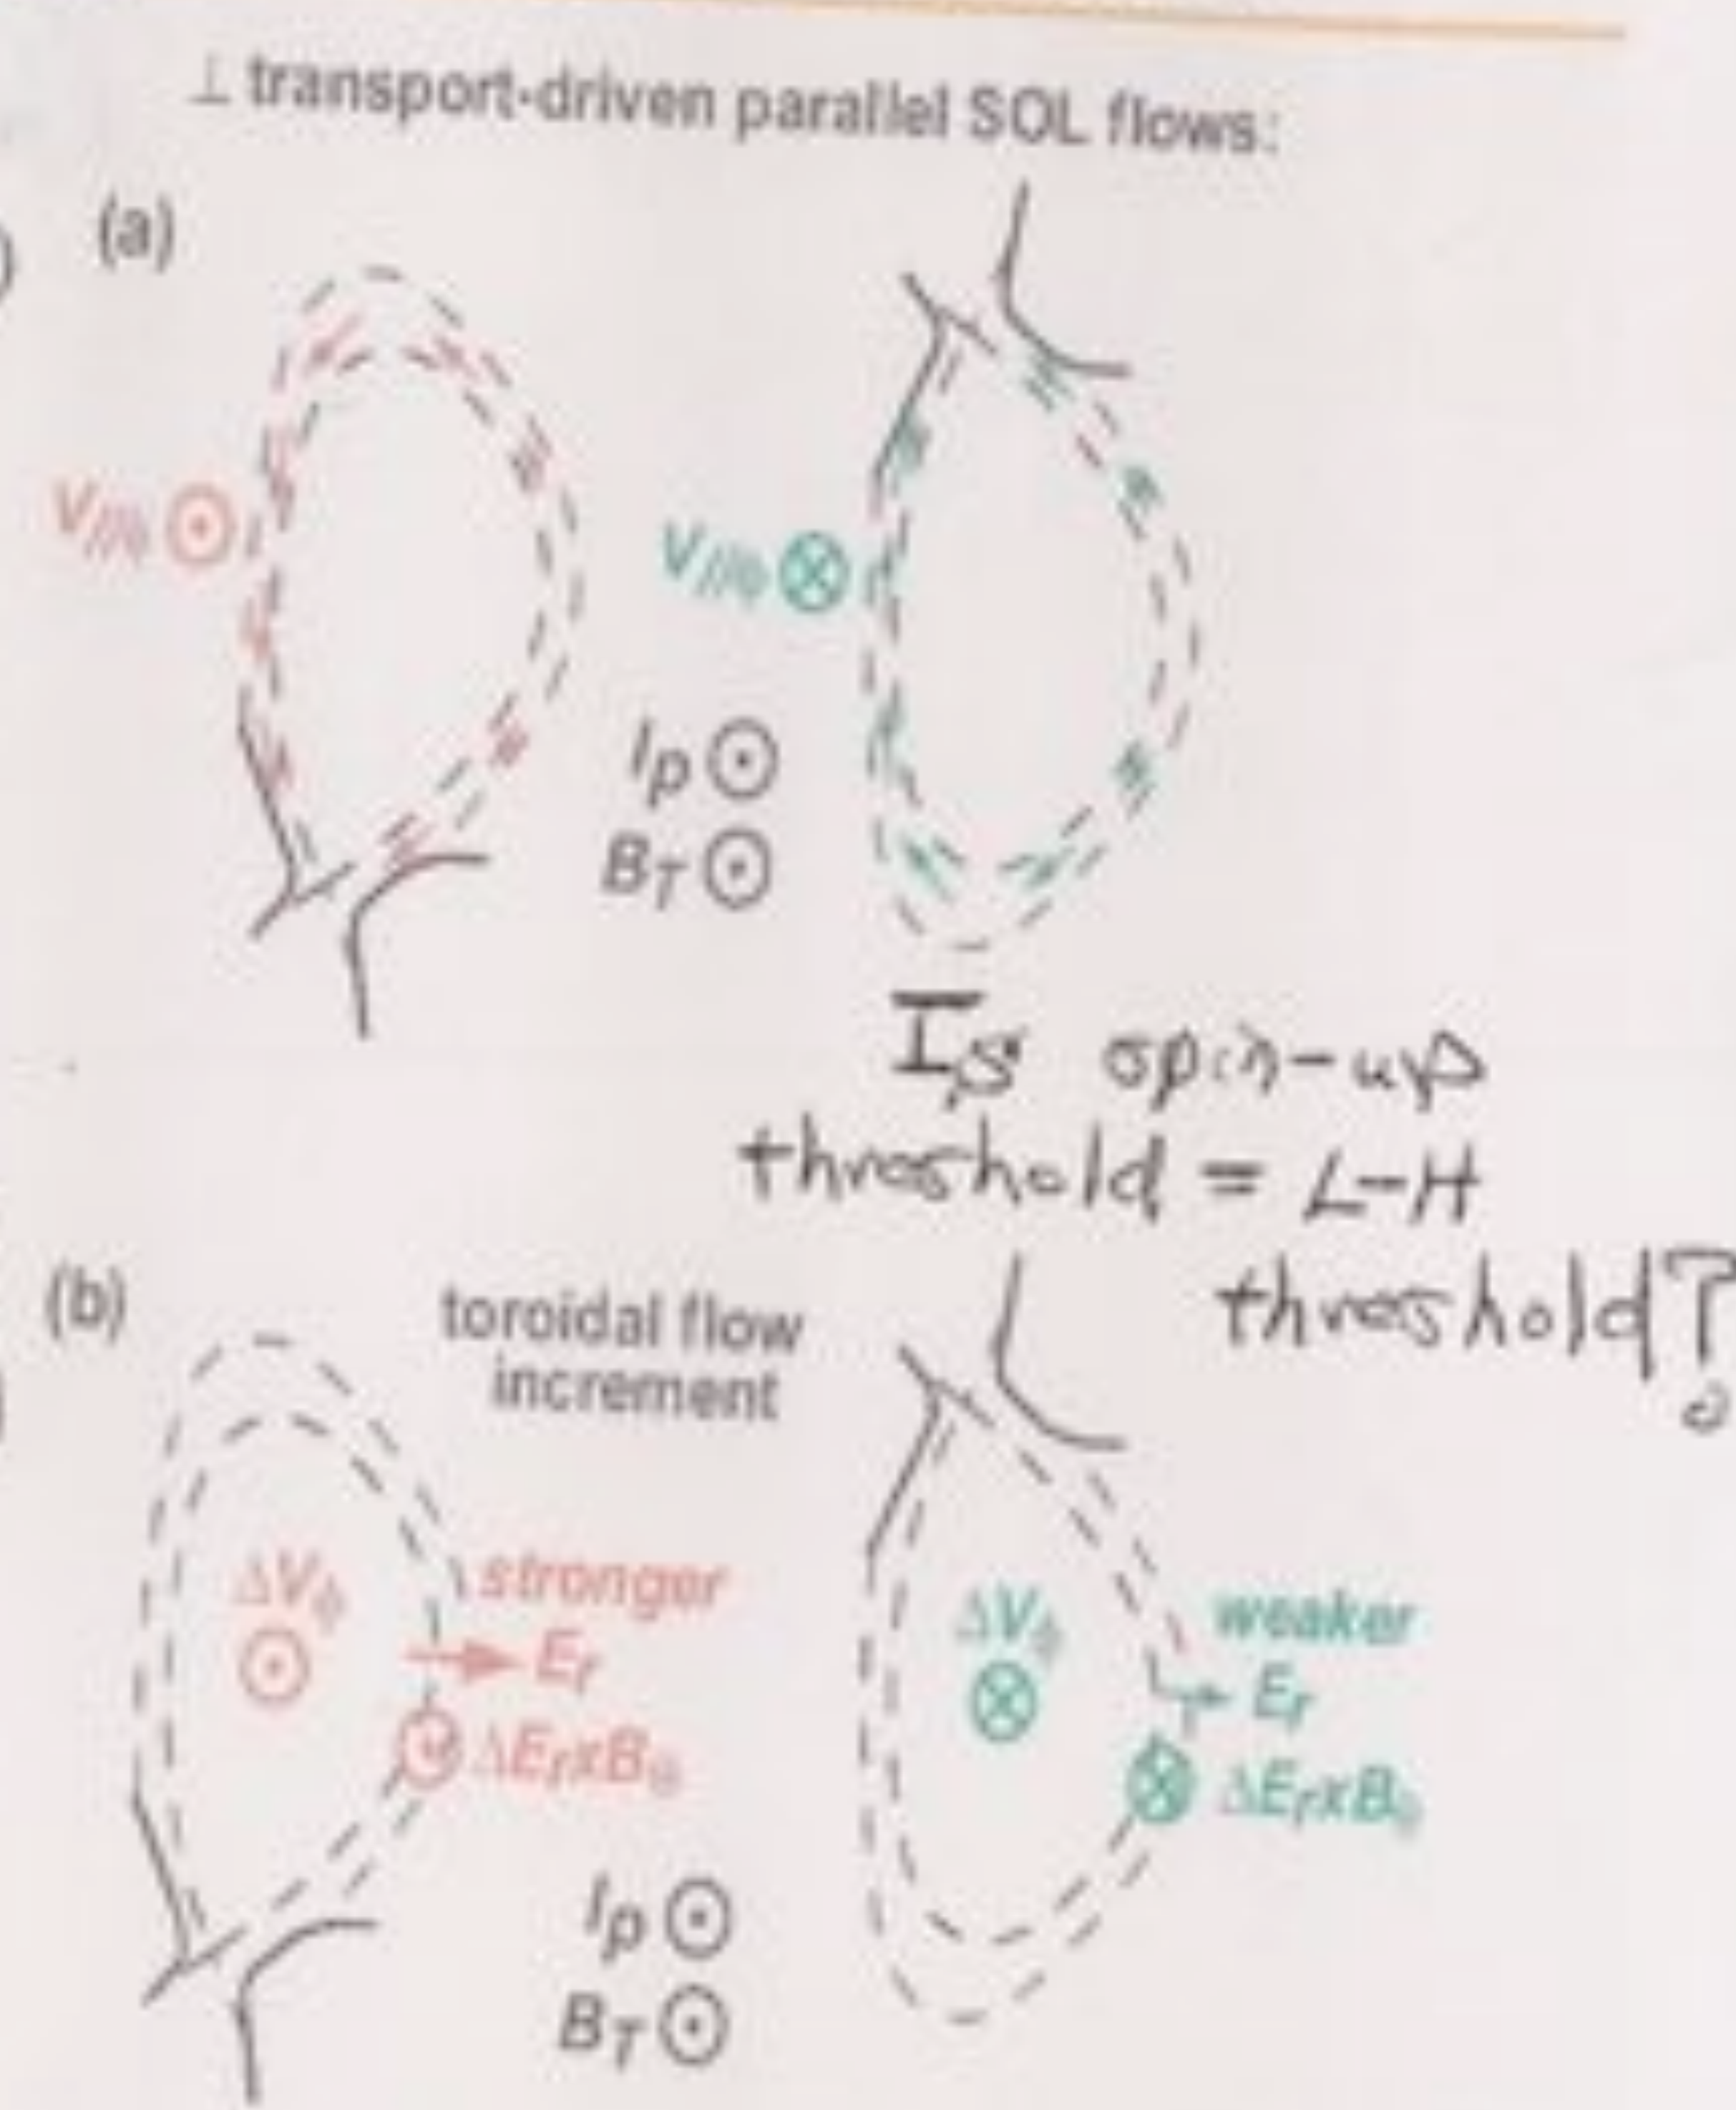 ⊥ transport-driven parallel SOL flows:
(a)
V//ϕ
V//ϕ
Ip
BT
Is spin-up
threshold = L-H
threshold?
(b)
toroidal flow
increment
ΔVϕ
stronger
Er
ΔErxBθ
ΔVϕ
weaker
Er
ΔErxBθ
Ip
BT